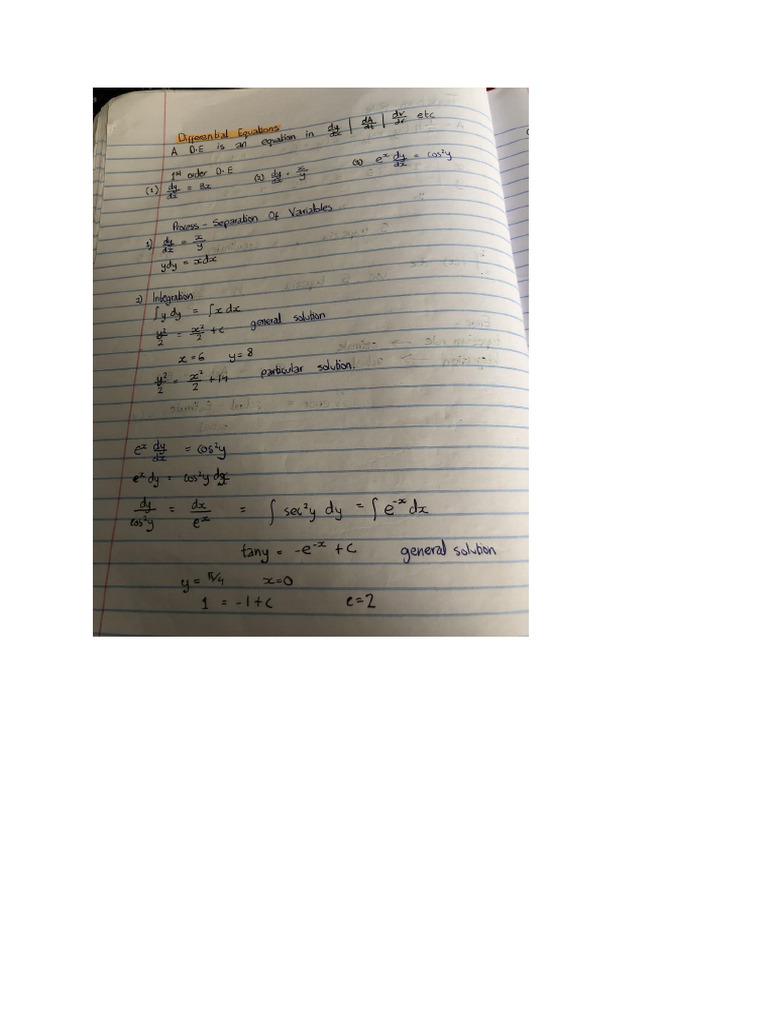 Differential Equations
A D.E is an equation in dy/dx | dA/dt | dv/dr etc
1st order D.E
(1) dy/dx = 3x (2) dy/dx = x/y (3) e^x dy/dx = cos²y
Process - Separation Of Variables
1) dy/dx = x/y
ydy = xdx
2) Integration
∫y dy = ∫x dx
y²/2 = x²/2 + c general solution
x=6 y=8
y²/2 = x²/2 + 14 particular solution.
e^x dy/dx = cos²y
e^x dy = cos²y dx
dy/cos²y = dx/e^x = ∫ sec²y dy = ∫e^-x dx
tany = -e^-x + c general solution
y = π/4 x=0
1 = -1+c c=2